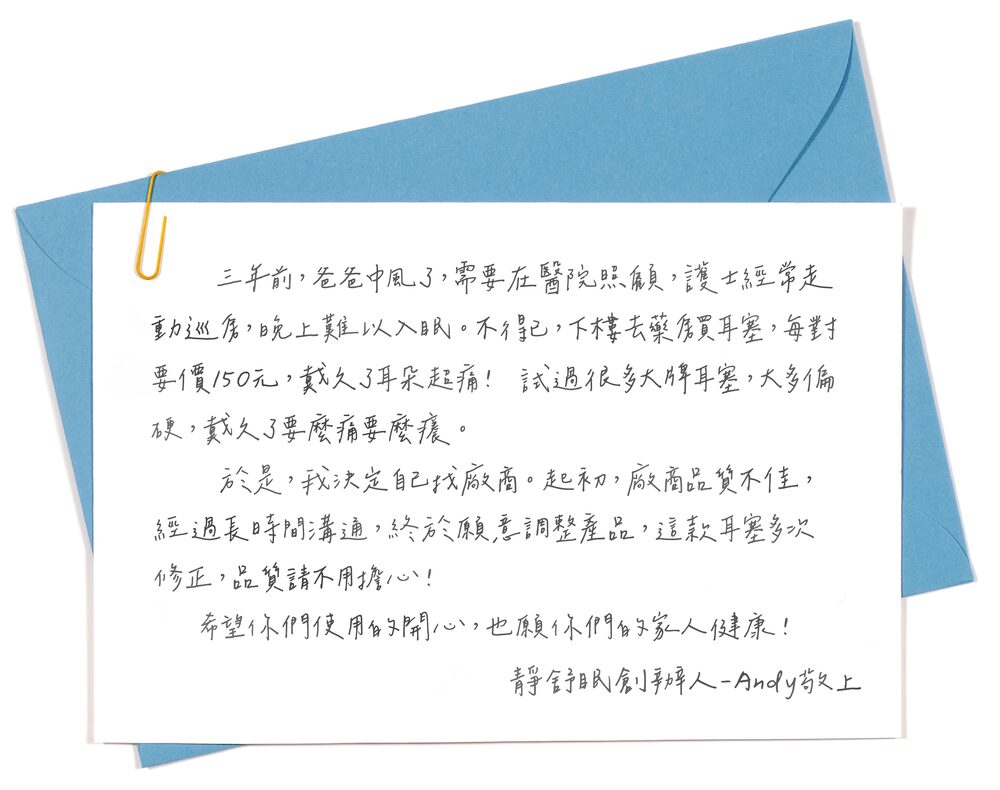 三年前，爸爸中風了，需要在醫院照顧，護士經常走
動巡房，晚上難以入眠。不得已，下樓去藥房買耳塞，每對
要價150元，戴久了耳朵超痛！ 試過很多大牌耳塞，大多偏
硬，戴久了要麼痛要麼癢。
於是，我決定自己找廠商。起初，廠商品質不佳，
經過長時間溝通，終於願意調整產品，這款耳塞多次
修正，品質請不用擔心！
希望你們使用的開心，也願你們的家人健康！
靜舒眠創辦人-Andy敬上